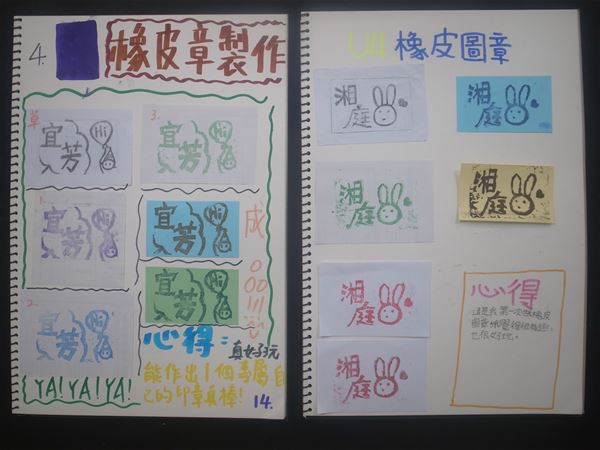 4.
橡皮章製作
草
宜芳
Hi
3.
宜芳
Hi
1.
宜芳
Hi
宜芳
Hi
成
2.
宜芳
Hi
宜芳
Hi
心得:
真好玩
能作出1個專屬自
己的印章真棒!
YA!YA!YA!
14.
04橡皮圖章
湘庭
湘庭
湘庭
湘庭
湘庭
湘庭
心得
這是我第一次做橡皮
圖章
也很好玩。